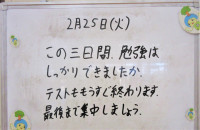 2月25日(火)
この三日間、勉強は
しっかりできましたか。
テストももうすぐ終わります。
最後まで集中しましょう。